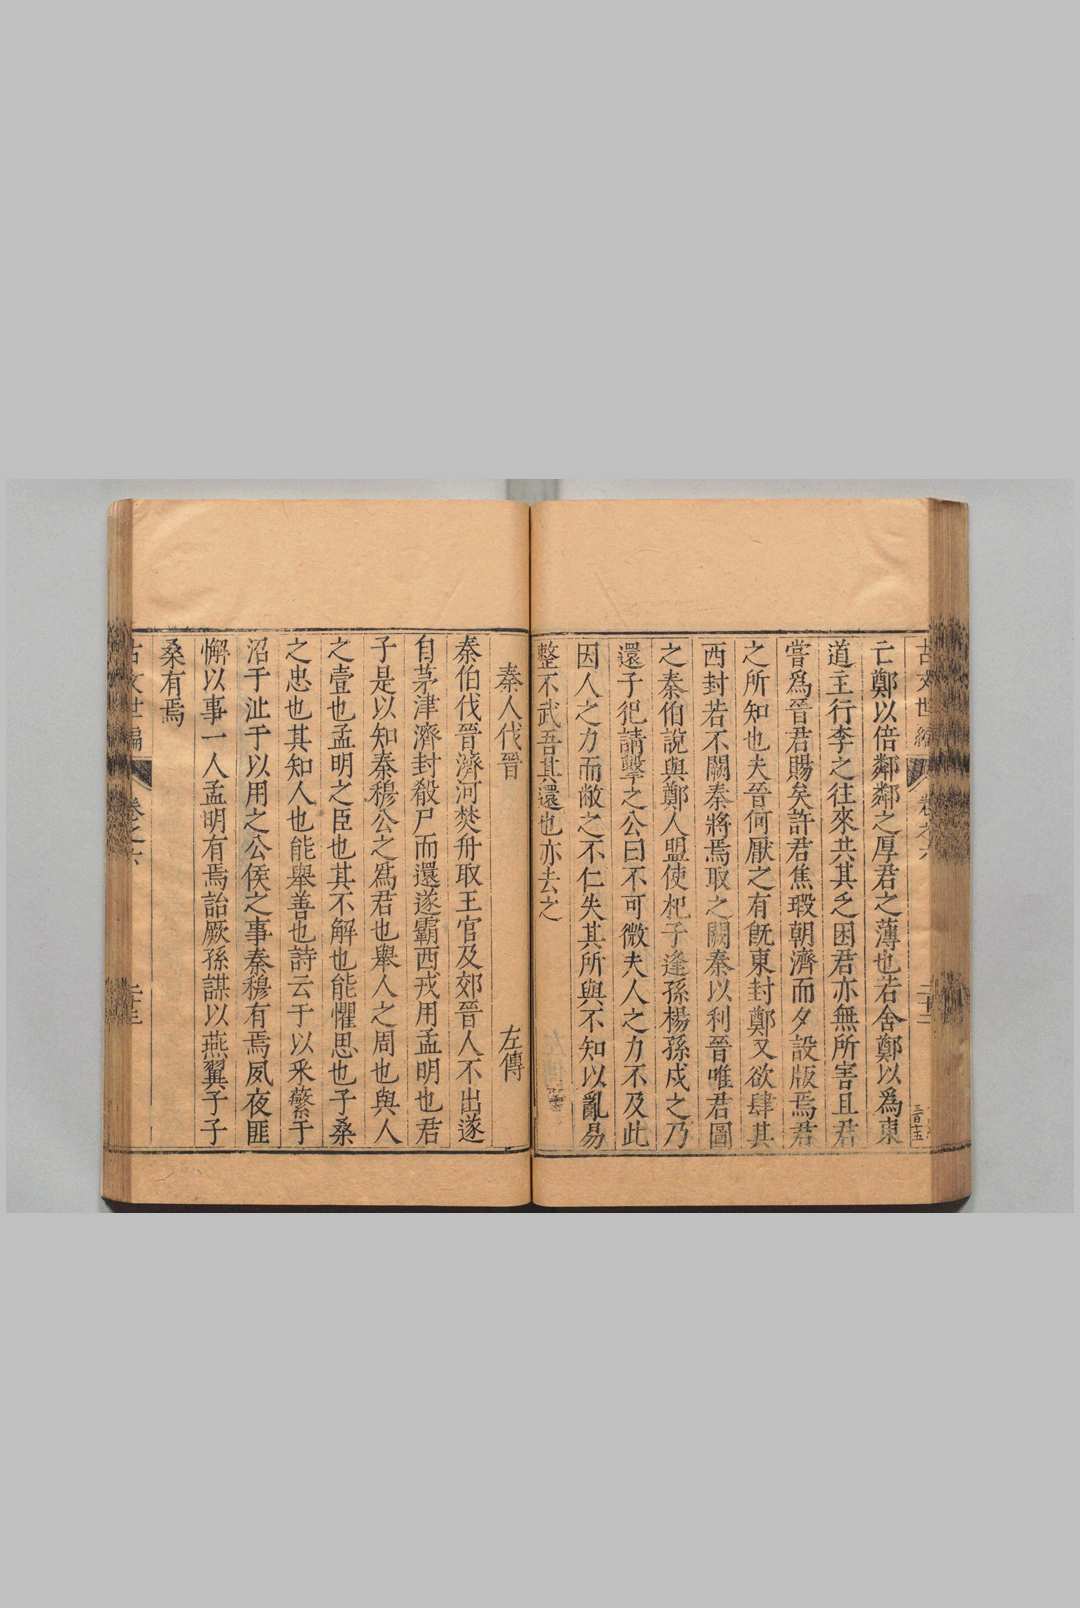 古文世編 卷之六
亡鄭以倍鄰鄰之厚君之薄也若舍鄭以爲東
道主行李之往來共其乏困君亦無所害且君
嘗爲晉君賜矣許君焦瑕朝濟而夕設版焉君
之所知也夫晉何厭之有旣東封鄭又欲肆其
西封若不闕秦將焉取之闕秦以利晉唯君圖
之秦伯說與鄭人盟使杞子逢孫楊孫戍之乃
還子犯請擊之公曰不可微夫人之力不及此
因人之力而敝之不仁失其所與不知以亂易
整不武吾其還也亦去之
秦人伐晉 左傳
秦伯伐晉濟河焚舟取王官及郊晉人不出遂
自茅津濟封殽尸而還遂霸西戎用孟明也君
子是以知秦穆公之爲君也舉人之周也與人
之壹也孟明之臣也其不解也能懼思也子桑
之忠也其知人也能舉善也詩云于以釆蘩于
沼于沚于以用之公侯之事秦穆有焉夙夜匪
懈以事一人孟明有焉詒厥孫謀以燕翼子子
桑有焉
古文世編 卷之六